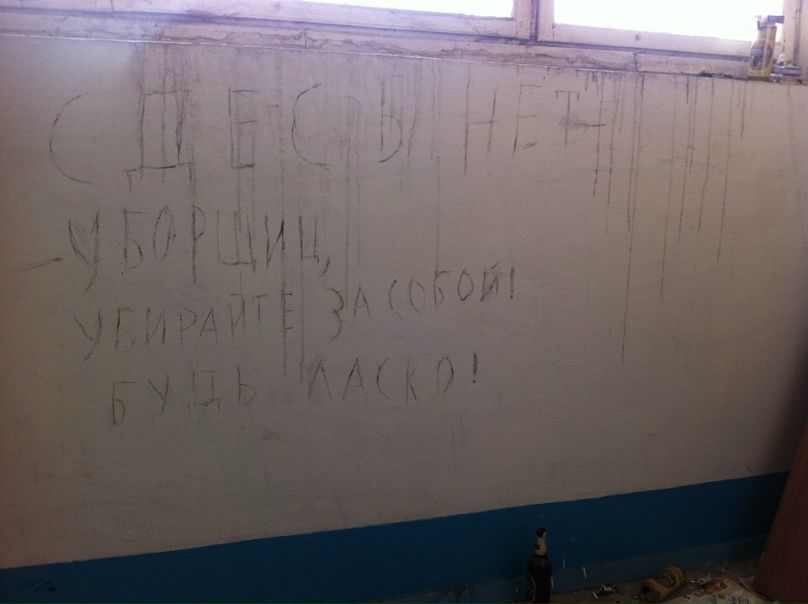 СДЕСЬ НЕТ
УБОРЩИЦ,
УБИРАЙТЕ ЗА СОБОЙ!
БУДЬ ЛАСКО!